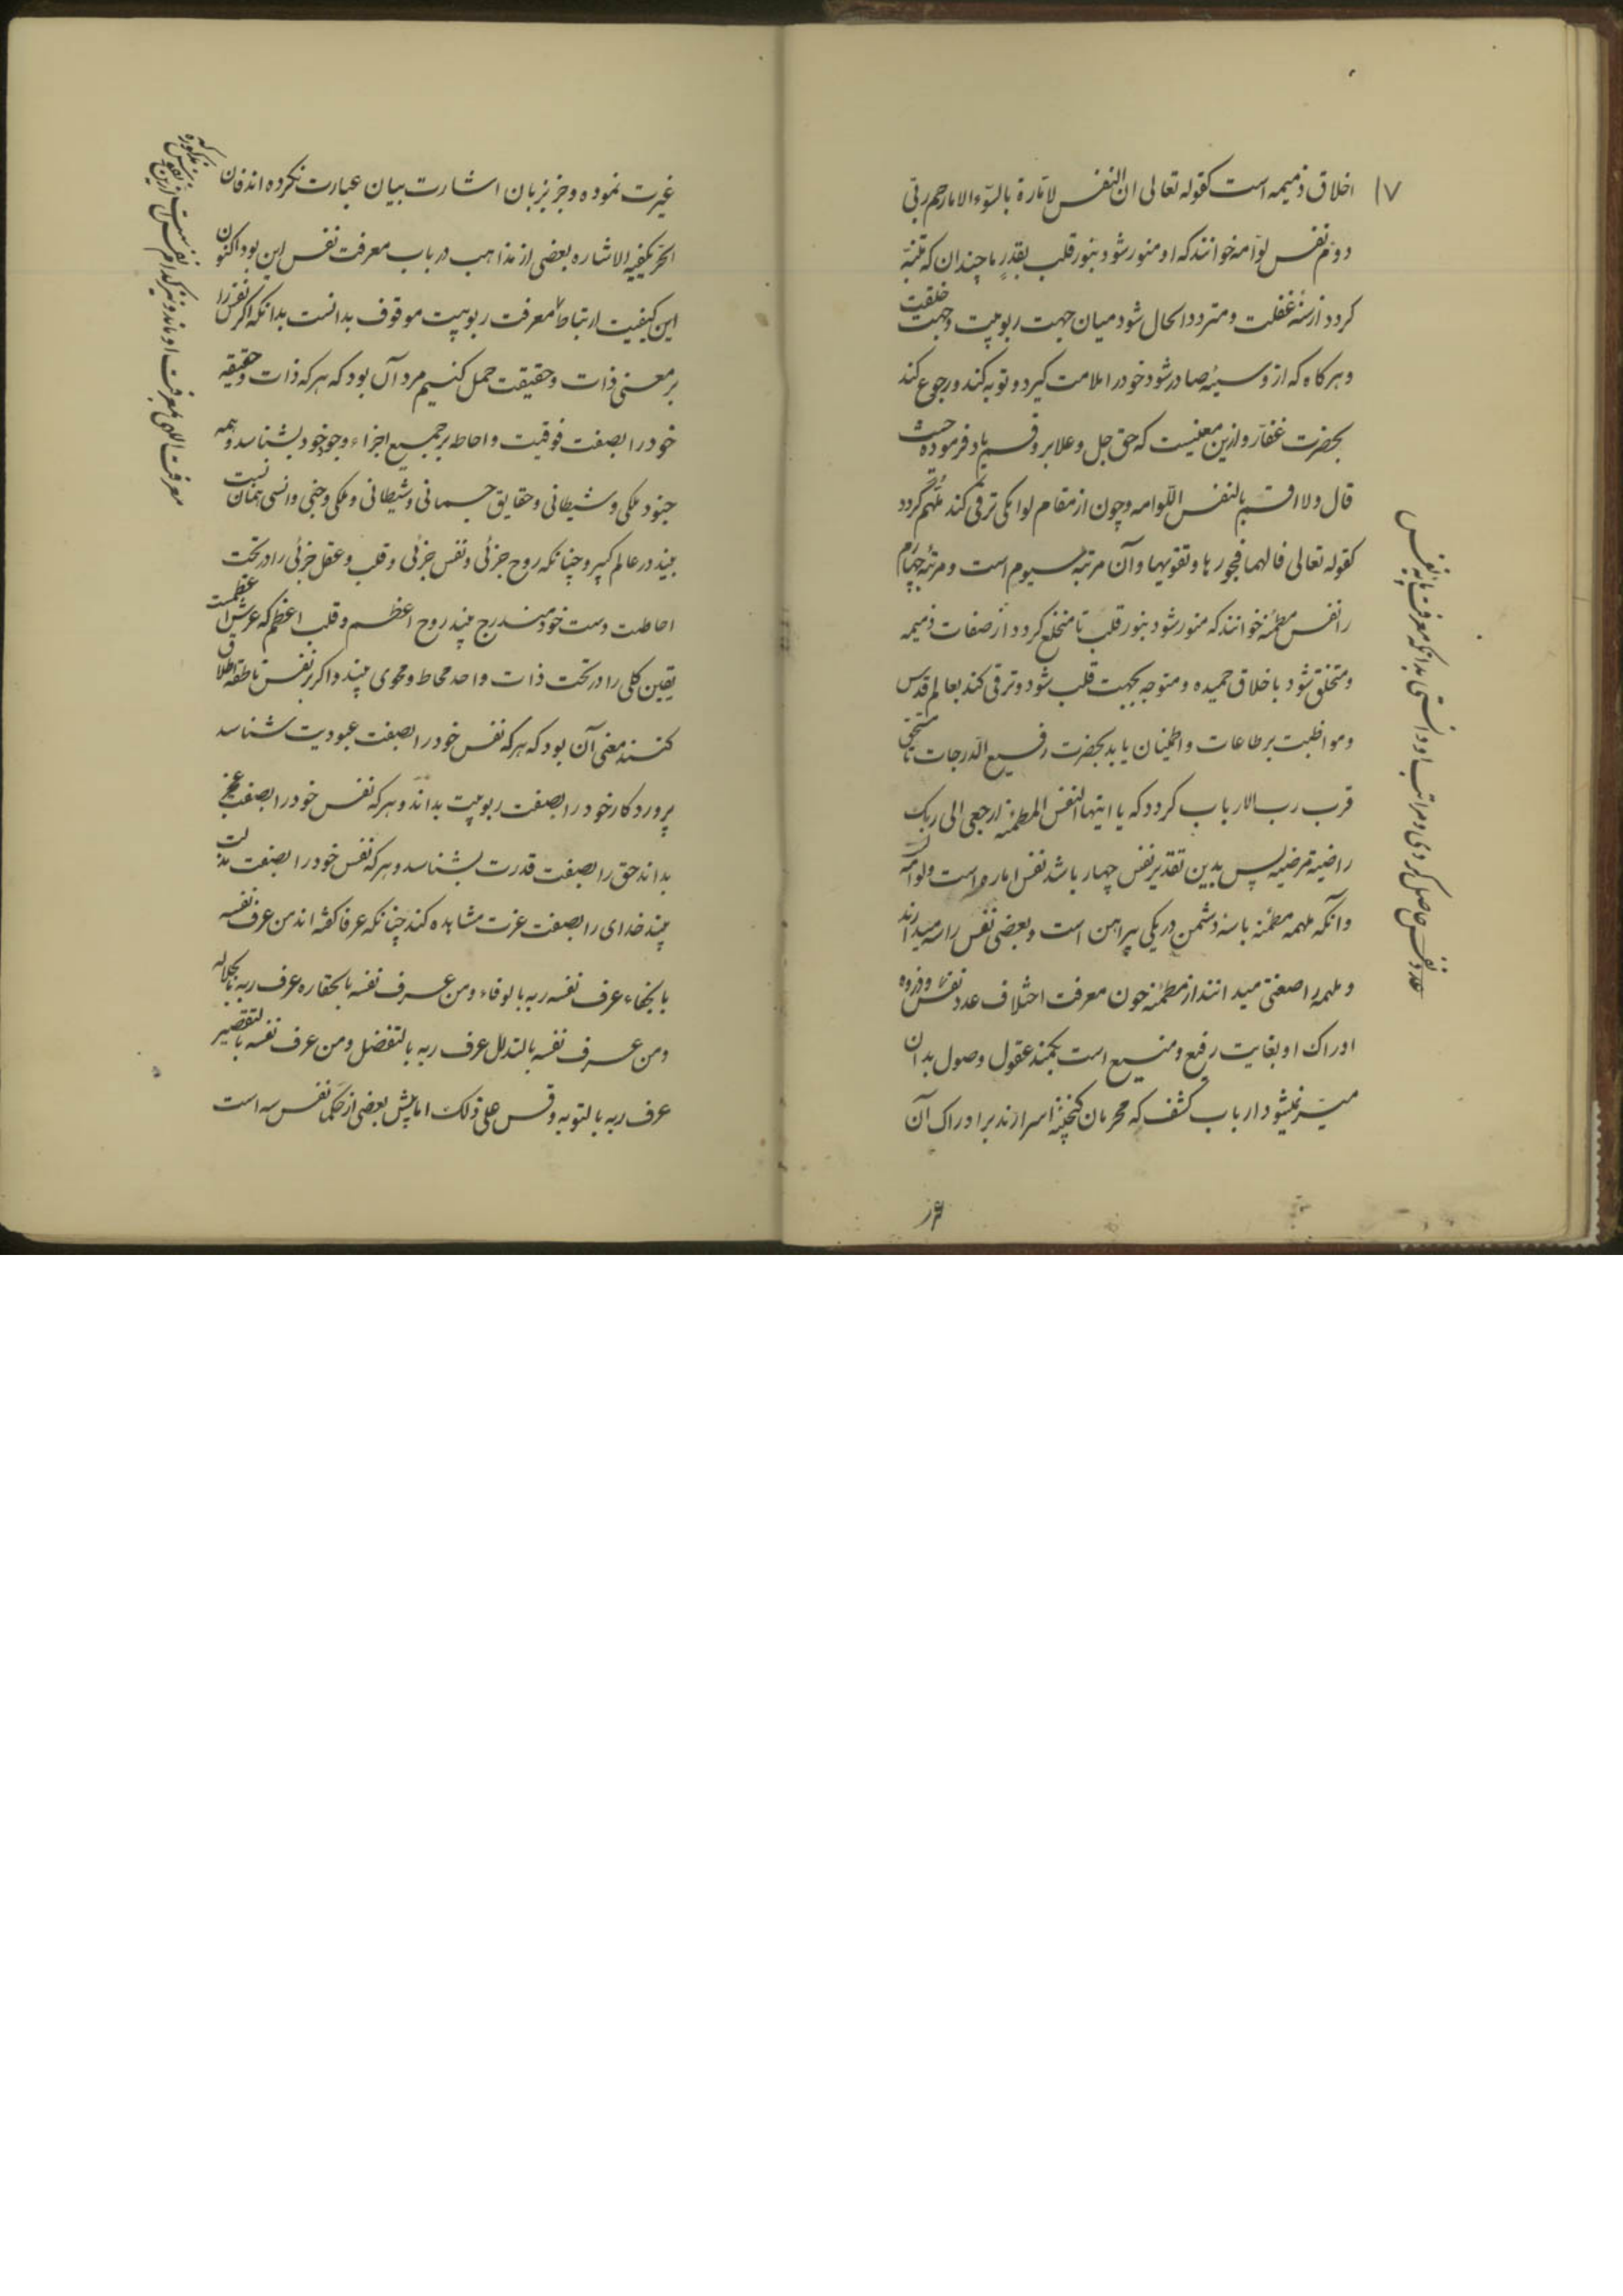 ۱۷
اخلاق ذمیمه است کقوله تعالی ان النفس لامّارة بالسّوء الا ما رحم ربّی
دوّم نفس لوّامه خوانند که او منور شود بنور قلب بقدرِ ما چندان که متنبّه
کردد از سنهٔ غفلت و متردد الحال شود میان جهت ربوبیت وجهت خلقت
و هرکاه که از و سیّئه صادر شود خود را ملامت کیرد و توبه کند و رجوع کند
بحضرت غفّار و ازین معنیست که حق جل و علا برو قسم یاد فرموده حیث
قال ولا اقسم بالنفس اللّوامه و چون از مقام لوامکی ترقی کند مُلهَم گردد
کقوله تعالی فالهمها فجورها وتقویها و آن مرتبهٔ سیوم است و مرتبهٔ چهارم
را نفس مطمئنه خوانند که منور شود بنور قلب تا منخلع کردد از صفات ذمیمه
و متخلق شود باخلاق حمیده و متوجه بجهت قلب شود و ترقی کند بعالم قدس
و مواظبت بر طاعات و اطمینان یابد بحضرت رفیع الدّرجات تا مستحق
قرب رب الارباب کردد که یا ایتها النفس المطمئنه ارجعی الی ربک
راضیة مرضیه پس بدین تقدیر نفس چهار باشد نفس اماره است و لوامه
وانکه ملهمه مطمئنه باسهٔ دشمن در یکی پیراهن است و بعضی نفس را سه میدارند
و ملهمه را صفتی میدانند از مطمئنه چون معرفت اختلاف عدد نفس و ذروه
ادراک او بغایت رفیع و منیع است بکمند عقول وصول بدان
میسّر نمیشود ارباب کشف که محرمان کنجینهٔ اسرارند بر ادراک آن
عدد نفس حاصل کردی و مراتب او دانستی بدانکه معرفت نفس
غیرت نموده و جز بزبان اشارت بیان عبارت نکرده اند فان
الحرّ یکفیه الاشاره بعضی از مذاهب در باب معرفت نفس این بود اکنون
این کیفیت ارتباط معرفت ربوبیت موقوف بدانست بدانکه اکر نفس را
بر معنی ذات و حقیقت حمل کنیم مراد آن بود که هر که ذات و حقیقه
خود را بصفت فوقیت و احاطه بر جمیع اجزاء وجود خود بشناسد و همه
جنود ملکی و شیطانی و حقایق جسمانی و شیطانی و ملکی و جنی و انسی همان نسبت
بیند در عالم کبیر و چنانکه روح جزئی و نفس جزئی و قلب و عقل جزئی را در تحت
احاطت دست خود مندرج بیند روح اعظم و قلب اعظم که عرش عظیمست
یقین کلی را در تحت ذات واحد محاط و محوی بیند و اکر بر نفس ناطقه اطلاق
کنند معنی آن بود که هر که نفس خود را بصفت عبودیت شناسد
پروردکار خود را بصفت ربوبیت بداند و هر که نفس خود را بصفت عجز
بداند حق را بصفت قدرت بشناسد و هر که نفس خود را بصفت مذلت
بیند خدای را بصفت عزت مشاهده کند چنانکه عرفا کفته اند من عرف نفسه
بالجفاء عرف نفسه ربه بالوفاء ومن عرف نفسه بالحقاره عرف ربه بالجلاله
ومن عرف نفسه بالتذلل عرف ربه بالتفضل ومن عرف نفسه بالتقصیر
عرف ربه بالتوبه و قس علی ذلک اما پیش بعضی از حکما نفس سه است
معرفت اللهی بمعرفت او